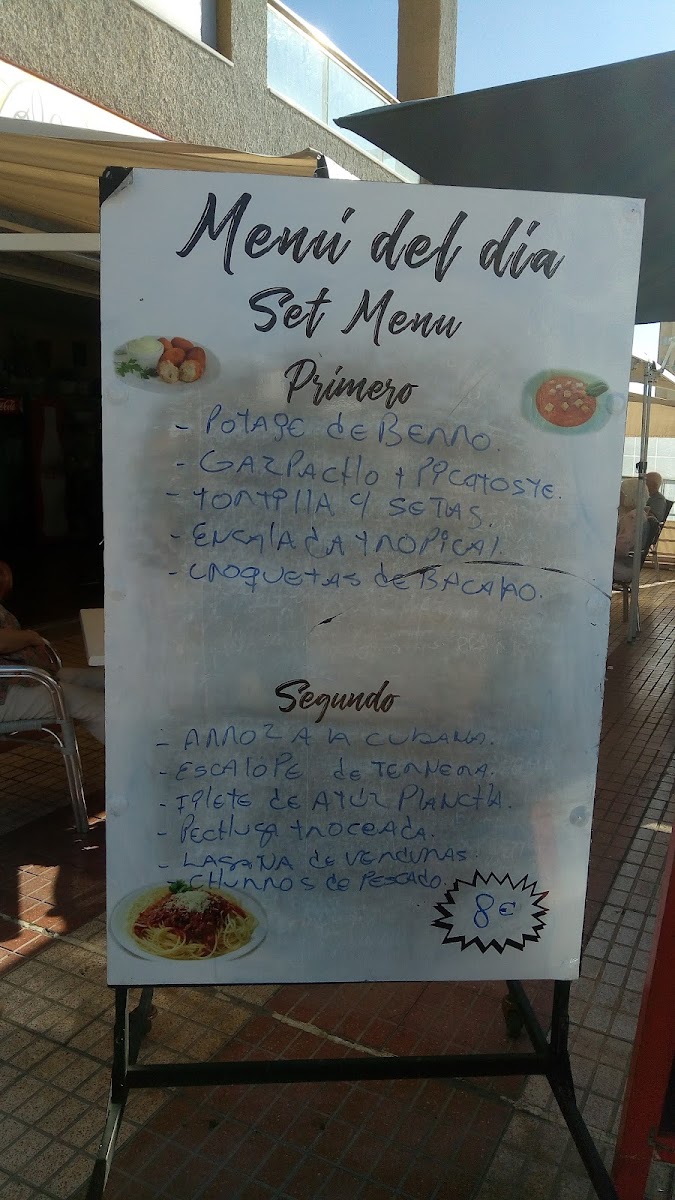 Menú del día
Set Menu
Primero
- POTAJE de BERRO.
- GAZPACHO + PICATOSTE.
- TORTILLA Y SETAS.
- ENSALADA TROPICAL.
- CROQUETAS de BACALAO.
Segundo
- ARROZ A LA CUBANA.
- ESCALOPE de TERNERA.
- FILETE de ATÚN PLANCHA.
- PECHUGA TROCEADA.
- LASAÑA de VERDURAS.
CHURROS de PESCADO.
8€